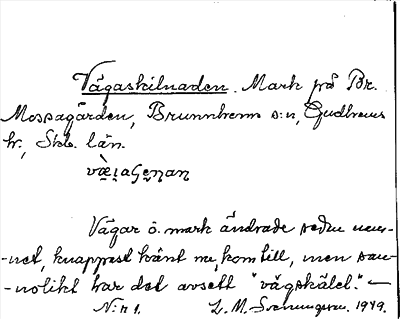 Vägaskilnaden. Mark på Br.
Mossagården, Brunnhems s:n, Gudhems
hr., Skb. län.
Vägar ö. mark ändrade sedan nam-
-net, knappast känt nu, kom till, men san-
-nolikt har det avsett "vägskälet." —
N:r 1. L. M. Svenungsson. 1949.